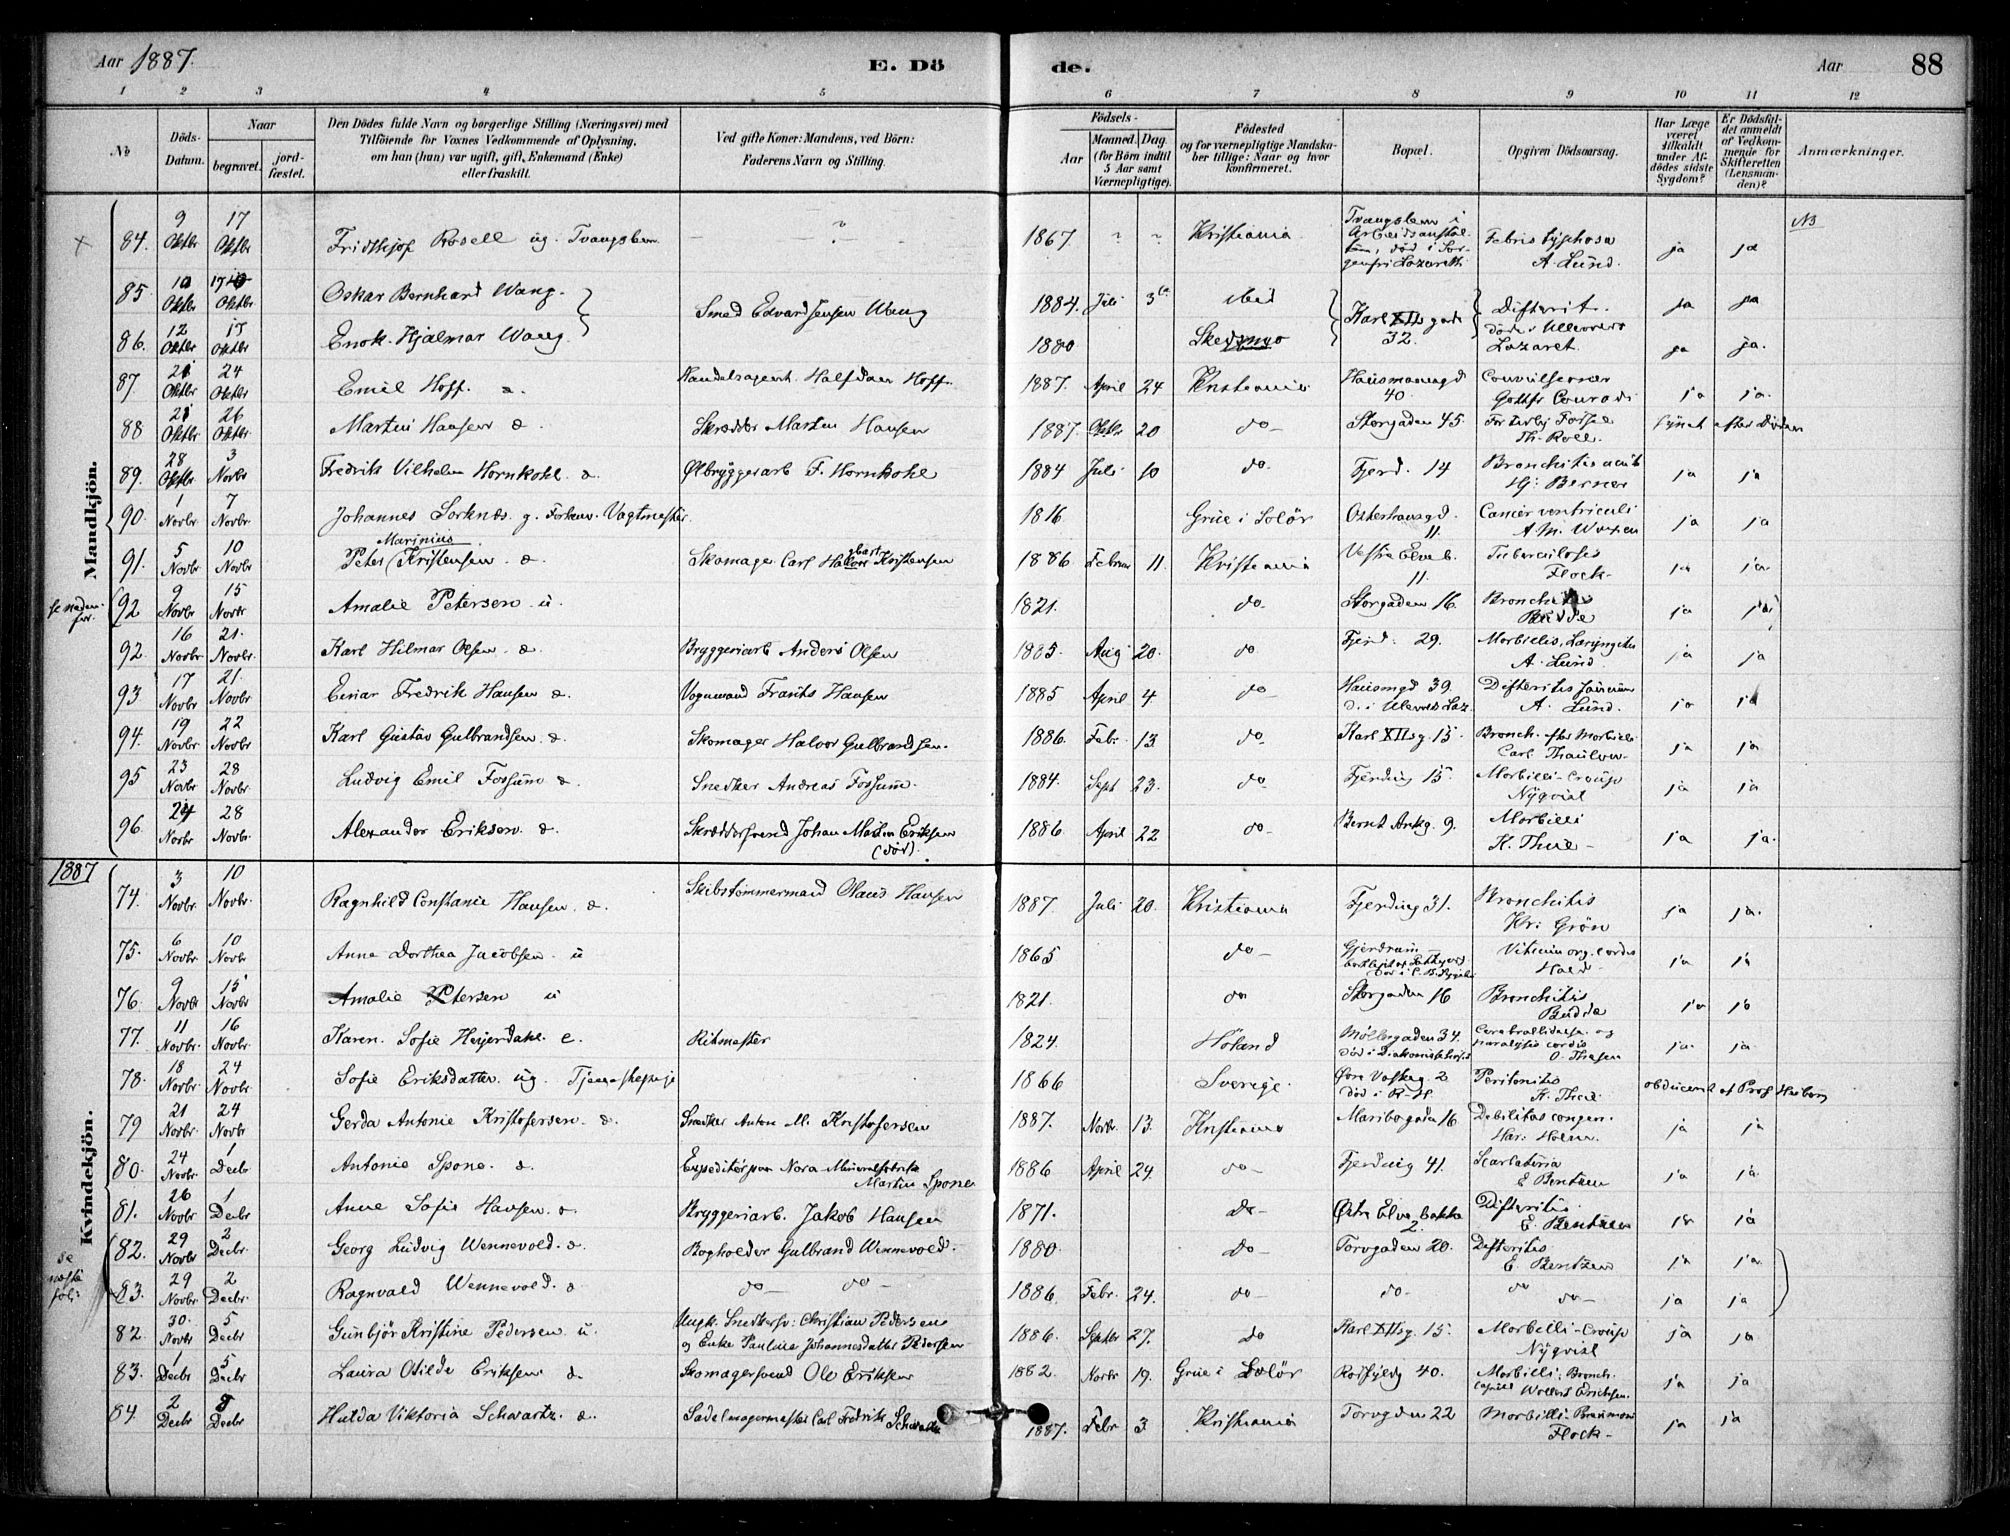 Aar 1887. E. Dö de. Aar 88
1 2 3 4 5 6 7 8 9 10 11 12
No
Döds-Datum.
Naar
begravet.
jordfæstet.
Den Dödes fulde Navn og borgerlige Stilling (Næringsvei) med
Tilföiende for Voxnes Vedkommende af Oplysning,
om han (hun) var ugift, gift, Enkemand (Enke)
eller fraskilt.
Ved gifte Koner: Mandens, ved Börn:
Faderens Navn og Stilling.
Födsels-
Aar
Maaned. Dag.
(for Börn indtil
5 Aar samt
Værnepligtige).
Födested
og for værnepligtige Mandska-
ber tillige: Naar og hvor
konfirmeret.
Bopæl.
Opgiven Dödsaarsag.
Har Læge
været
tilkaldt
under Af-
dödes sidste
Sygdom?
Er Dödsfal-
det anmeldt
af Vedkom-
mende for
Skifteretten
(Lensman-
den)?
Anmærkninger.
Mandkjön.
84. 9 Oktbr 17 Oktbr Fridthjof Rosell ug. Tvangslem 1867 Kristiania Tvangslem i Arbeidsanstalten, död i Sorgenfri Lazareth Febris typhosa A. Lund. ja ja NB
85 10 Oktbr 17 Oktbr Oskar Bernhard Wang. Smed Edvard Jensen Wang 1884. Juli 3 Karl XII gade 32. Difterit. döde i Ullevolds Lazaret. ja ja
86. 12 Oktbr 17 Oktbr Enok Hjalmar Wang. 1880 Skedsmo ja ja.
87. 21 Oktbr 24 Oktbr Emil Hoff. d. Handelsagent Halfdan Hoff. 1887. April 24 Kristiania Hausmannsgd 40. Convulsioner Gottfr Conradi ja ja.
88 21 Oktbr 26 Oktbr Martin Hansen d. Skrædder Martin Hansen 1887. Oktbr 20 do- Storgaden 45. For tidlig Fødsel Th. Roll. synet efter Döden
89. 28 Oktbr 3 Novbr Fredrik Vilhelm Hornkohl. d. Ølbryggeriarb F. Hornkohl 1884 Juli 10 do. Fjerd. 14 Bronchitis acut Hj: Berner ja ja
90. 1 Novbr 7 Novbr. Johannes Sorknæs g. Forhenv. Vagtmester. 1816 Grue i Solör Osterhausgd. 11. Cancer ventriculi ja ja
91. 5 Novbr. 10 Novbr. Peter Marinius Kristensen d. Skomager Carl Kristensen 1886 Februar 11. Kristiania Vestre Elveb. 11. Tuberculosis Flock- ja ja.
se nedenfor. 92 9 Novbr 15 Novbr Amalie Petersen u. 1821. do- Storgaden 16. Bronchitis Budde ja ja
92. 16 Novbr. 21. Novbr. Karl Hilmar Olsen d. Bryggeriarb Anders Olsen 1885 Aug 20. do Fjerd. 29. Morbillis, Laryngitis A. Lund. ja ja
93 17 Novbr. 21. Novbr. Einar Fredrik Hansen d. Vognmand Frants Hansen 1885 April 4 do Hausmgd 39. d. i Ulevolds Laz. Difteritis faucium A. Lund. ja ja
94. 19 Novbr. 22 Novbr. Karl Gustav Gulbrandsen. d. Skomager Halvor Gulbrandsen. 1886. Febr. 13. do- Karl XIIsg. 15. Bronch. efter Morbilli Carl Thaulow- ja ja
95 23 Novbr. 28 Novbr. Ludvig Emil Fossum d Snedker Andreas Fossum. 1884. Sept 23. do- Fjerding 15 Morbilli-Croup Nyqvist ja ja
96. 24 Novbr. 28 Novbr. Alexander Eriksen. d. Skræddersvend Johan Martin Eriksen (död). 1886. April 22 do- Bernt Ankg. 9. Morbilli K. Thue- ja ja.
1887
Kvindekjön.
74. 3 Novbr. 10 Novbr. Ragnhild Constance Hansen. d. Skibstömmermand Olaus Hansen 1887. Juli 20. Kristiania Fjerding 31. Bronchitis Kr: Grön ja ja.
75. 6 Novbr. 10 Novbr Anna Dorthea Jacobsen. u 1865 do- Gjerdrum Vitium org. cordis Hald- ja ja
76. 9 Novbr. 15 Novbr. Amalie Petersen u 1821. do Storgaden 16 Bronchitis Budde ja ja
77. 11 Novbr. 16 Novbr. Karen Sofie Heyerdahl e. Ritmester 1824. Höland Möllergaden 34. död i Diakonissehuset paralysis cordis O. Thesen ja ja.
78. 18 Novbr. 24 Novbr. Sofie Eriksdatter ug. Tjenestepige 1866 Sverige. Övre Voldg. 2 död i R-H. Peritonitis K. Thue. obduceret af Prof Heiberg
79 21 Novbr. 24 Novbr Gerda Antonie Kristofersen. d. Snedker Anton M. Kristofersen 1887. Novbr. 13. Kristiania Maribogaden 16 Debilitas congen. Har: Holm. ja ja
80. 24 Novbr. 1 Decbr Antonie Spone. d. Expeditör paa Nora Mineralfabrik Martin Spone 1886 April 24. do- Fjerding 41. Scarlatina E Bentzen ja ja.
81. 26 Novbr 1 Decbr. Anne Sofie Hansen. d. Bryggeriarb. Jakob Hansen 1871. Do- Østre Elvebakke 2. Difteritis E. Bentzen ja ja
82. 29 Novbr. 2 Decbr. Georg Ludvig Wennevold. d. Bogholder Gulbrand Wennevold. 1880. do- Torvgaden 20. Difteritis E Bentzen ja ja.
se næste fol: 83. 29 Novbr. 2 Decbr. Ragnvald Wennevold. d do- do- 1886. Febr. 24. do- do- do do- ja ja
82. 30. Novbr 5 Decbr Gunbjör Kristine Pedersen u. Ungk. Snedkersv: Christian Pedersen og Enke Pauline Johannesdatter Pedersen 1886. Septbr 27. do Karl XIIsg. 15. Morbilli-Croup Nyqvist ja ja
83. 1 Decbr 5 Decbr Laura Otilde Eriksen d. Skomagersvend Ole Eriksen 1882. Novbr 19. Grue i Solör 40. Morbilli, Bronch. capill Wollert Erichsen. ja ja
84. 2 Decbr 5 Decbr Hulda Viktoria Schwartz. d. Sadelmagermester Carl Fredrik Schwartz 1887. Febr 3 Kristiania Torvgden 22 Morbilli- Flock- ja ja